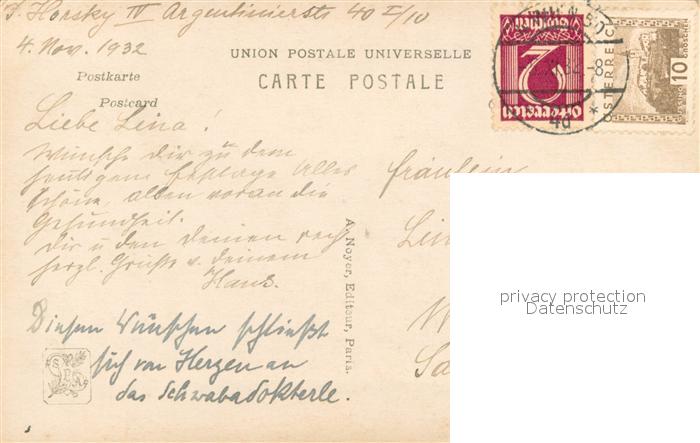 J. Horsky IV Argentinierstr 40 I/10
4. Nov. 1932
UNION POSTALE UNIVERSELLE
CARTE POSTALE
Postkarte
Postcard
Liebe Lina!
Wünsche Dir zu dem
heutigem Festtage Alles
Schöne, allen voran die
Gesundheit.
Dir u den Deinen rech
herzl. Grüße v. deinem
Hans.
Diesen Wünschen schließt
sich von Herzen an
das Schwabadokterle.
A. Noyer, Editeur, Paris.
fräulein
Lin
W
Sa
2
ÖSTERREICH
10
GROSCHEN
8
4d *
privacy protection
Datenschutz